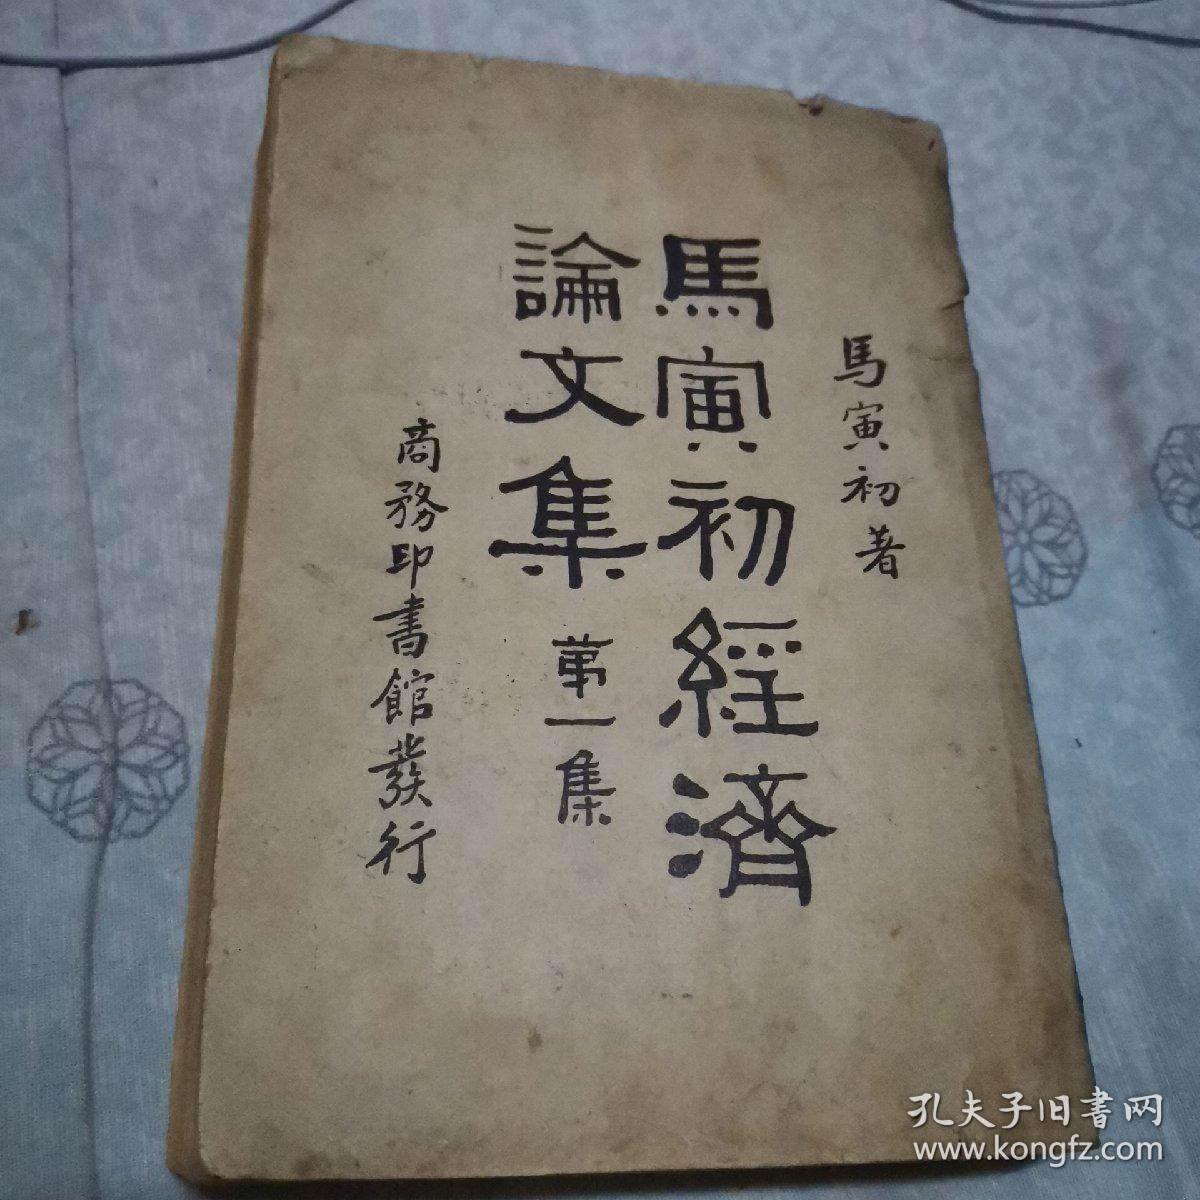 馬寅初著
馬寅初經濟
論文集 第一集
商務印書館發行
孔夫子旧書网
www.kongfz.com